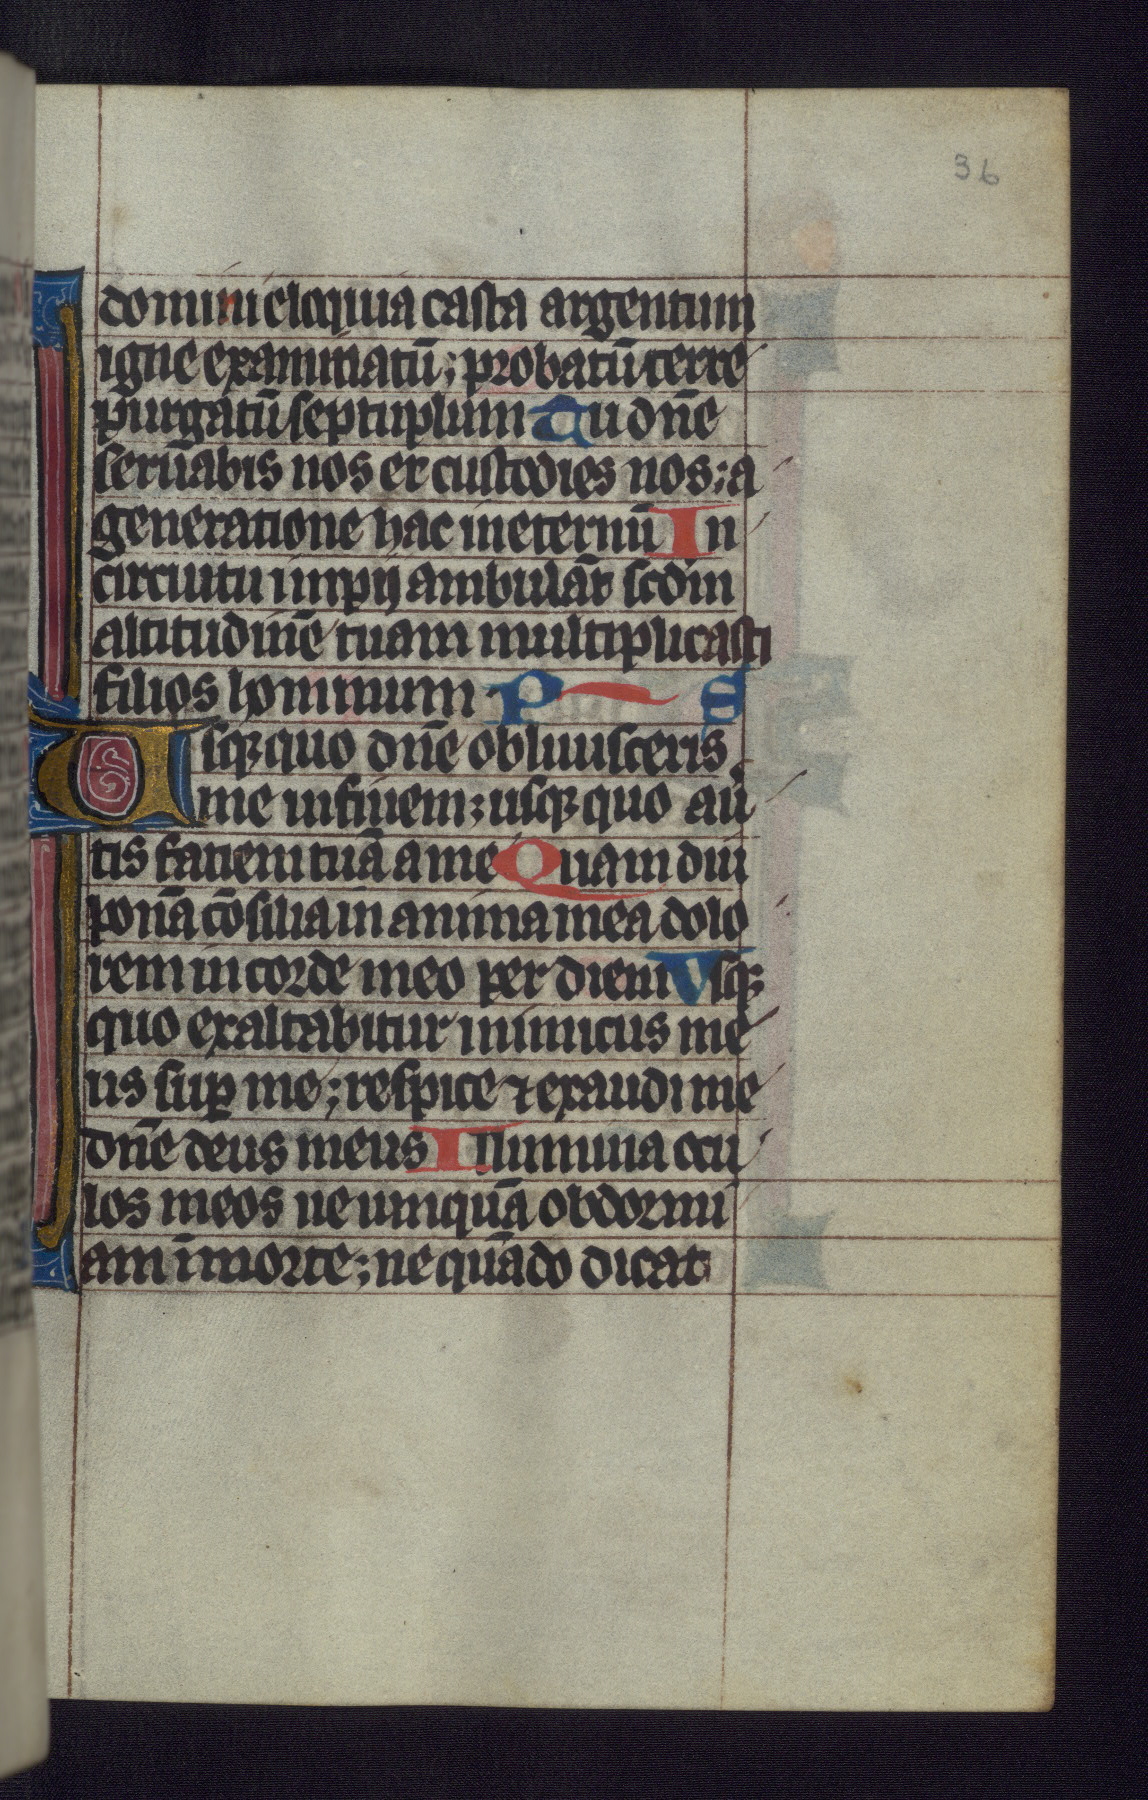 36
domini eloquia casta argentum
igne examinatū; probatū terre
purgatū septuplum Tu dn̄e
seruabis nos et custodies nos; a
generatione hac in eternū In
circuitu impij ambulāt scd̄m
altitudinē tuam multiplicasti
filios hominum Ps
Usq; quo dn̄e obliuisceris
me in finem; usq; quo auer
tis faciem tuā a me Quam diu
ponā cōsilia in anima mea dolo
rem in corde meo per diem Vsq;
quo exaltabitur inimicus me
us sup̄ me; respice ⁊ exaudi me
dn̄e deus meus Illumina ocu
los meos ne umquā obdormi
am ī morte; ne quādo dicat